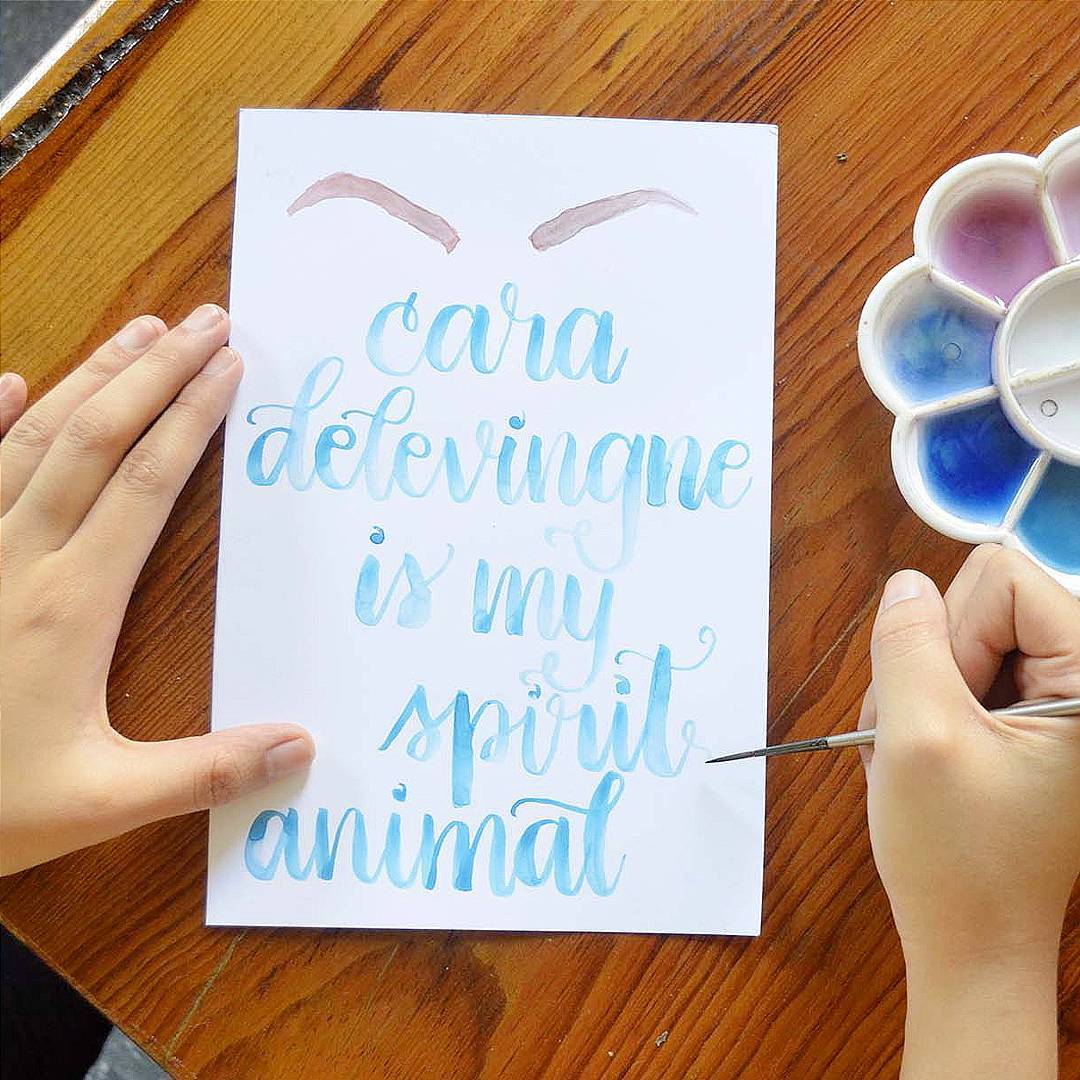 cara
delevingne
is my
spirit
animal